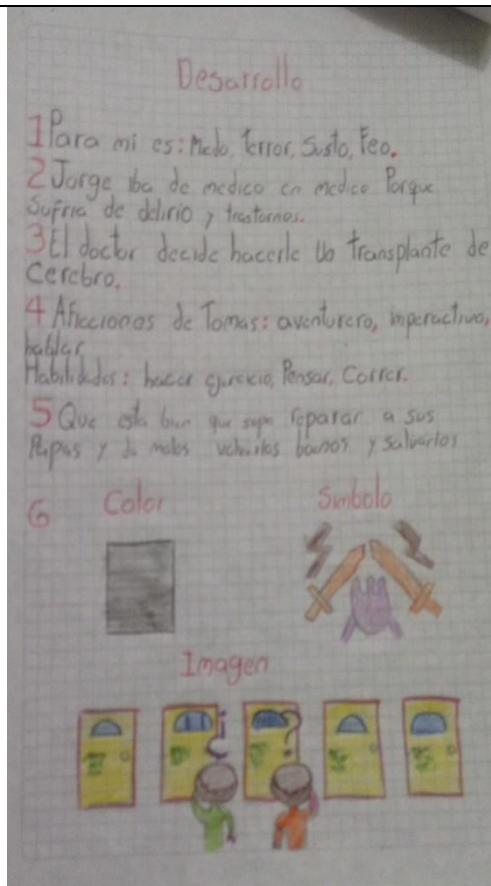 Desarrollo
1 Para mi es: Miedo, Terror, Susto, Feo.
2 Jorge iba de medico en medico Porque
Sufria de delirio y trastornos.
3 El doctor decide hacerle Un transplante de
Cerebro.
4 Aficciones de Tomas: aventurero, imperactivo,
hablar
Habilidades: hacer ejercicio, Pensar, Correr.
5 Que esta bien que supo reparar a sus
Papas y de malos volverlos buenos y salvarlos
6 Color Simbolo
Imagen
¿ ?